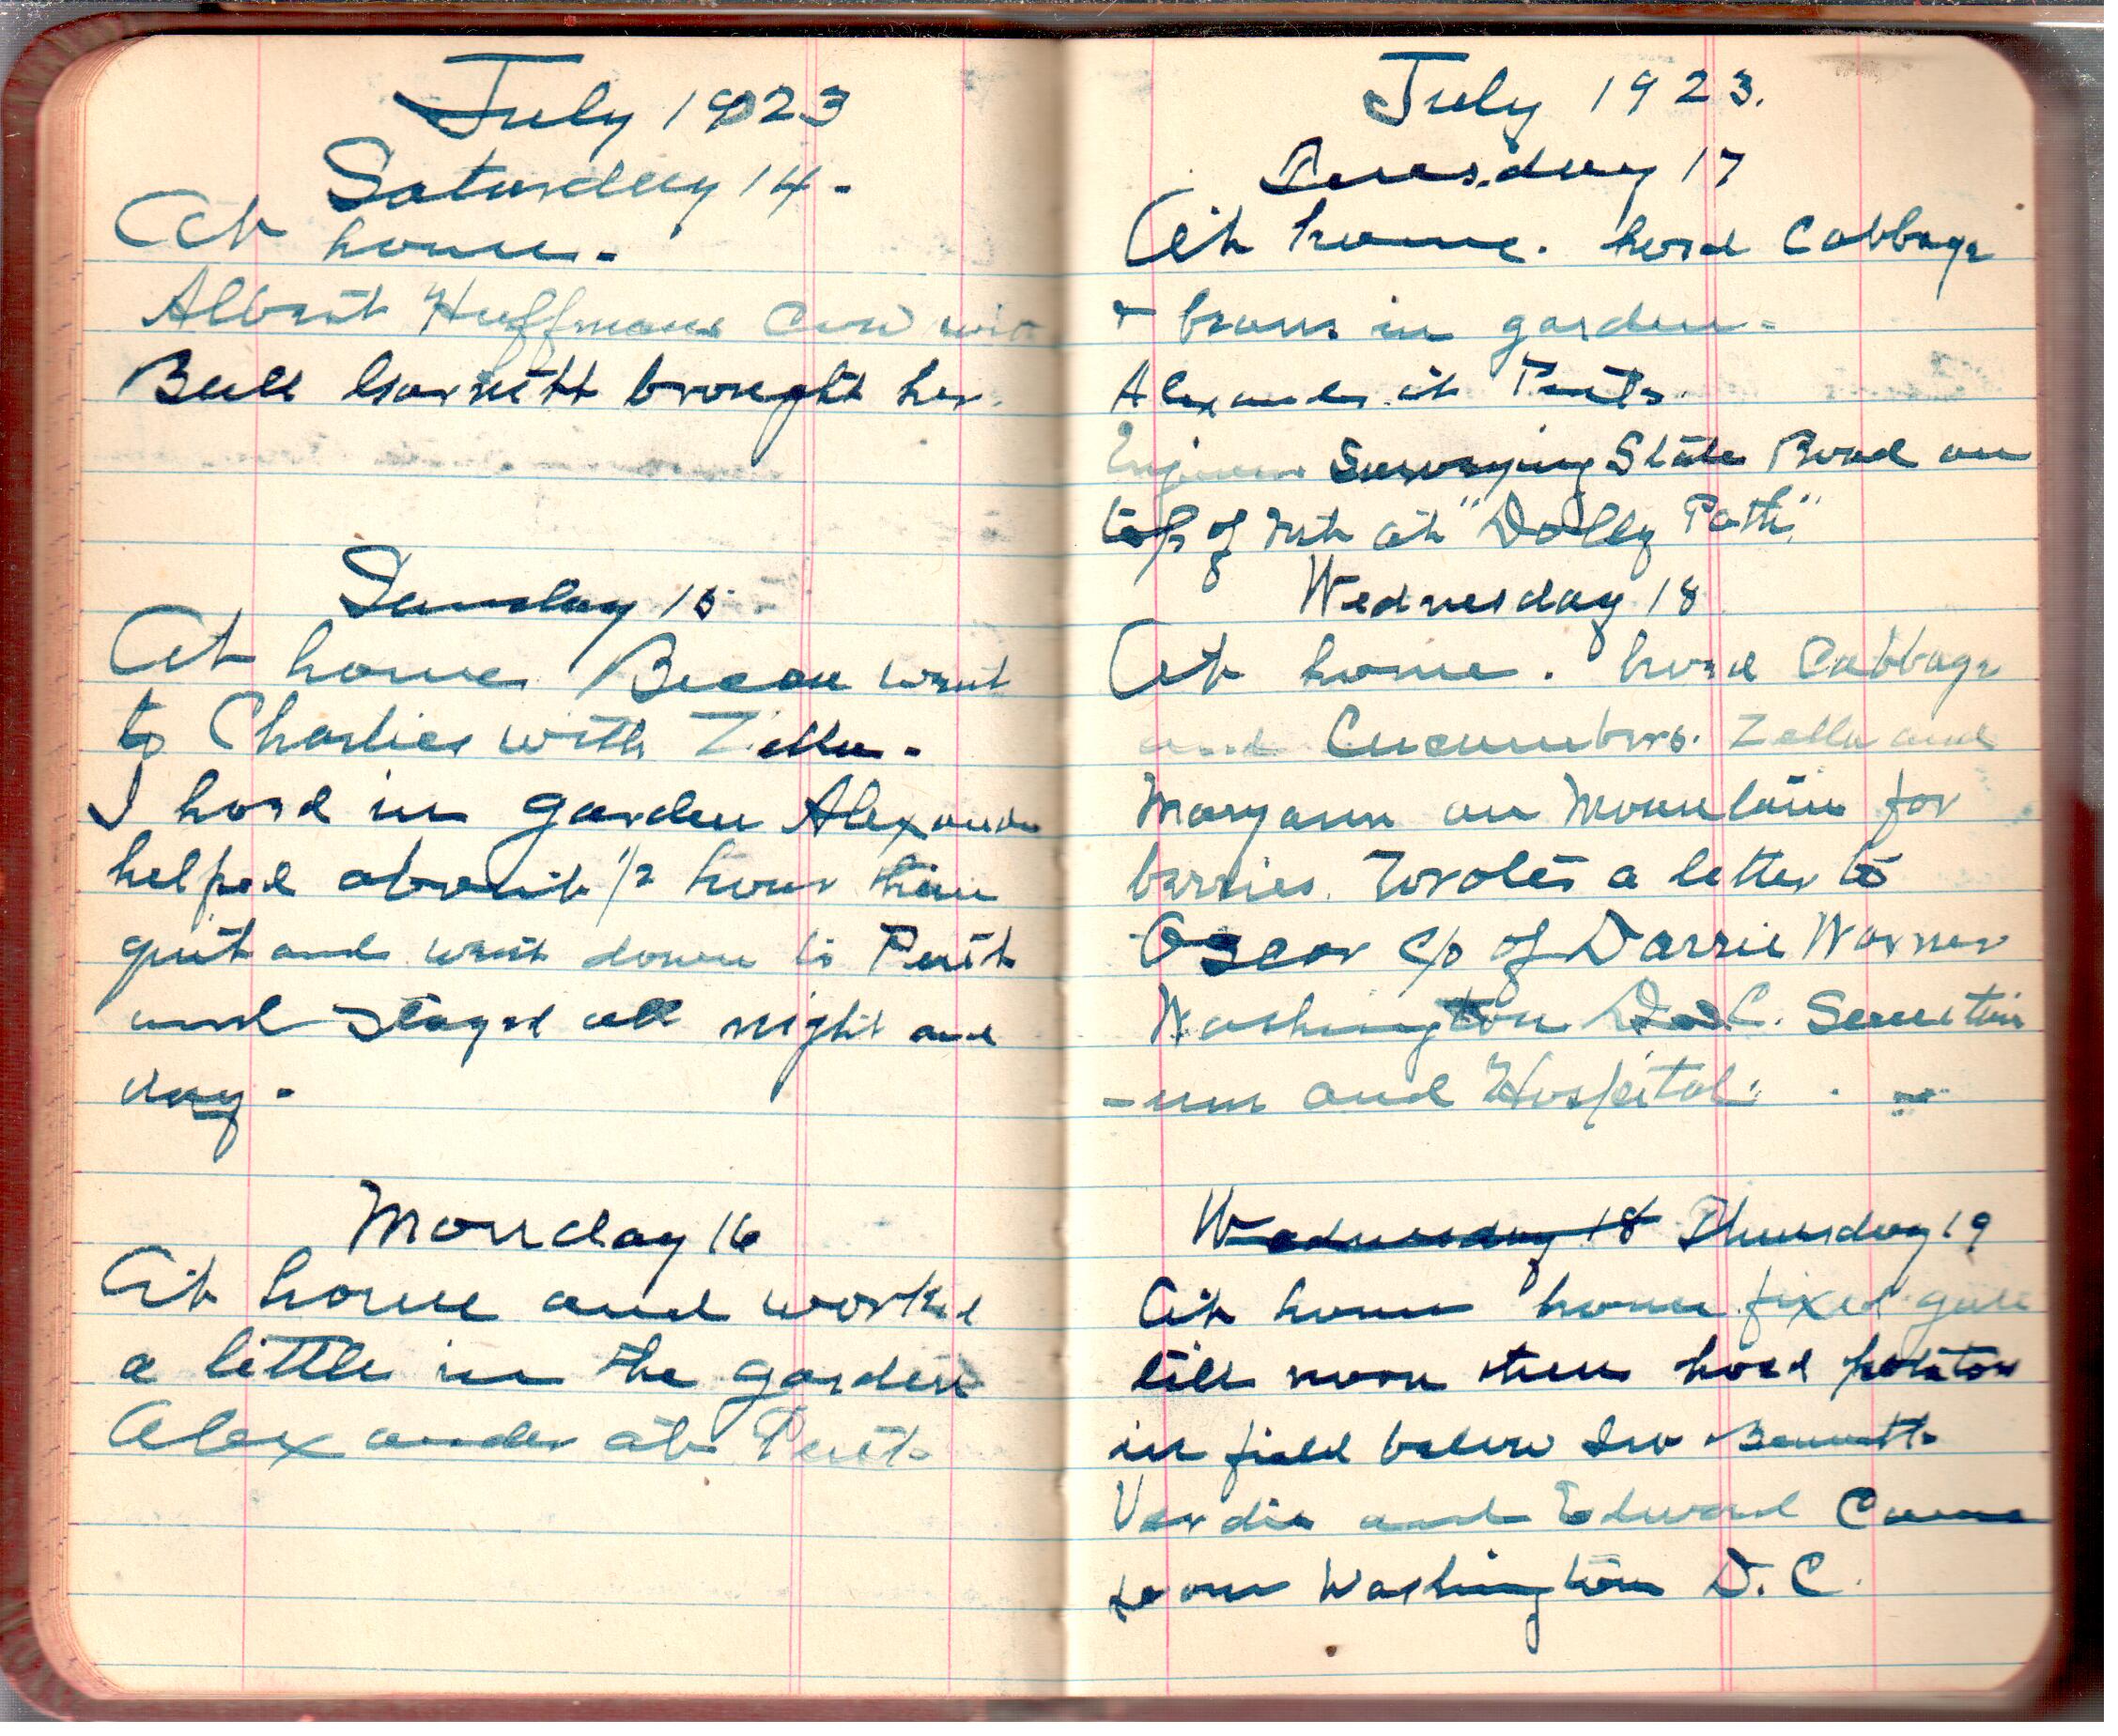 July 1923
Saturday 14.
At home.
Albert Huffmans Cow
Bull brought her.
Sunday 15
At home went
to Charlies with Zella.
I hoed in garden Alexander
helped about 1/2 hour then
quit and went down to
and stayed all night and
day.
Monday 16
At home and worked
a little in the garden
Alexander at
July 1923.
Tuesday 17
At home. hoed Cabbage
+ beans in garden.
Alexander at
Surveying State Road on
top of Mt. at "Dolly Path"
Wednesday 18
At home. hoed Cabbage
and Cucumbers. Zella and
Maryann on Mountain for
berries. Wrote a letter to
Oscar c/o of Warner
Washington D.C. Sanitari
-um and Hospital.
Wednesday 18 Thursday 19
At home home fixed
till noon then hoed
in field below
and Edward Came
Washington D.C.